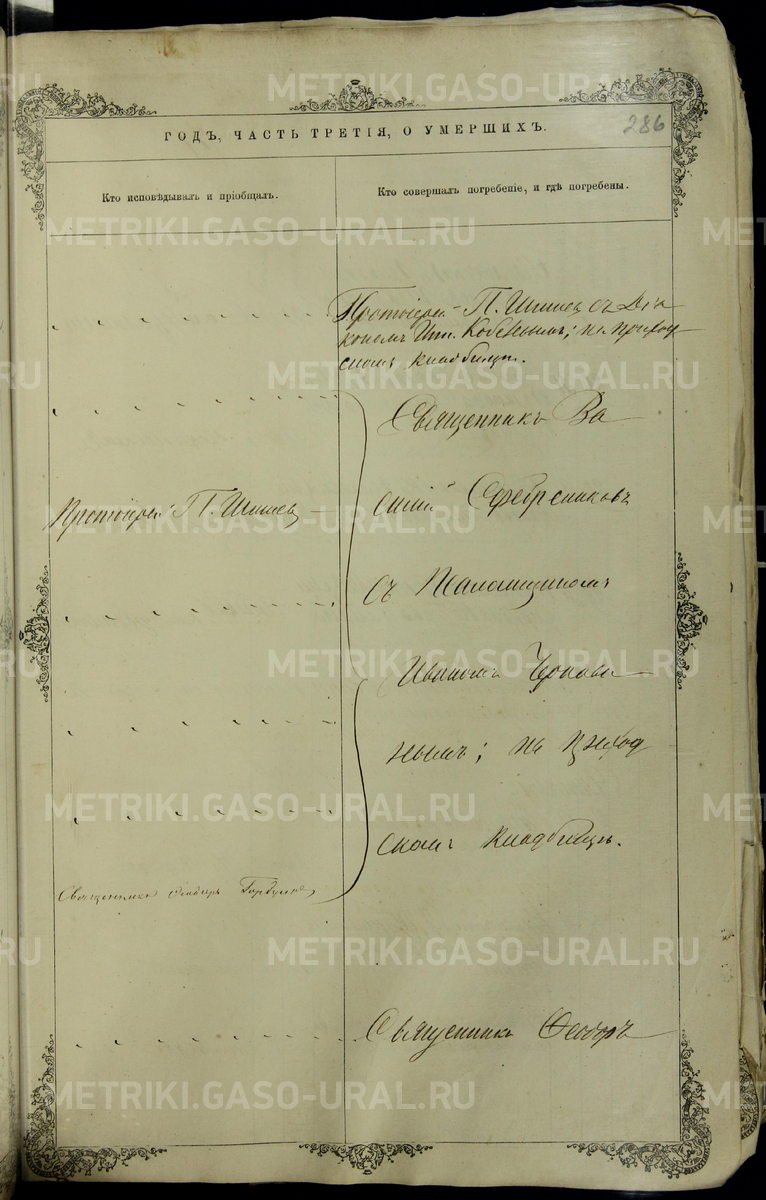 ГОДЪ, ЧАСТЬ ТРЕТІЯ, О УМЕРШИХЪ.
286
Кто исповѣдывалъ и пріобщалъ.
Кто совершалъ погребеніе, и гдѣ погребены.
Протоіерей П. Шишев съ Діа
кономъ Кобелвымъ; на приход
скомъ кладбищѣ.
Священникъ Ва
силій Серебренниковъ
Протоіерей П. Шишев
съ
Иваномъ
нымъ; на приход
скомъ кладбищѣ.
Священникъ Ѳеодоръ
Священникъ Ѳеодоръ
METRIKI.GASO-URAL.RU